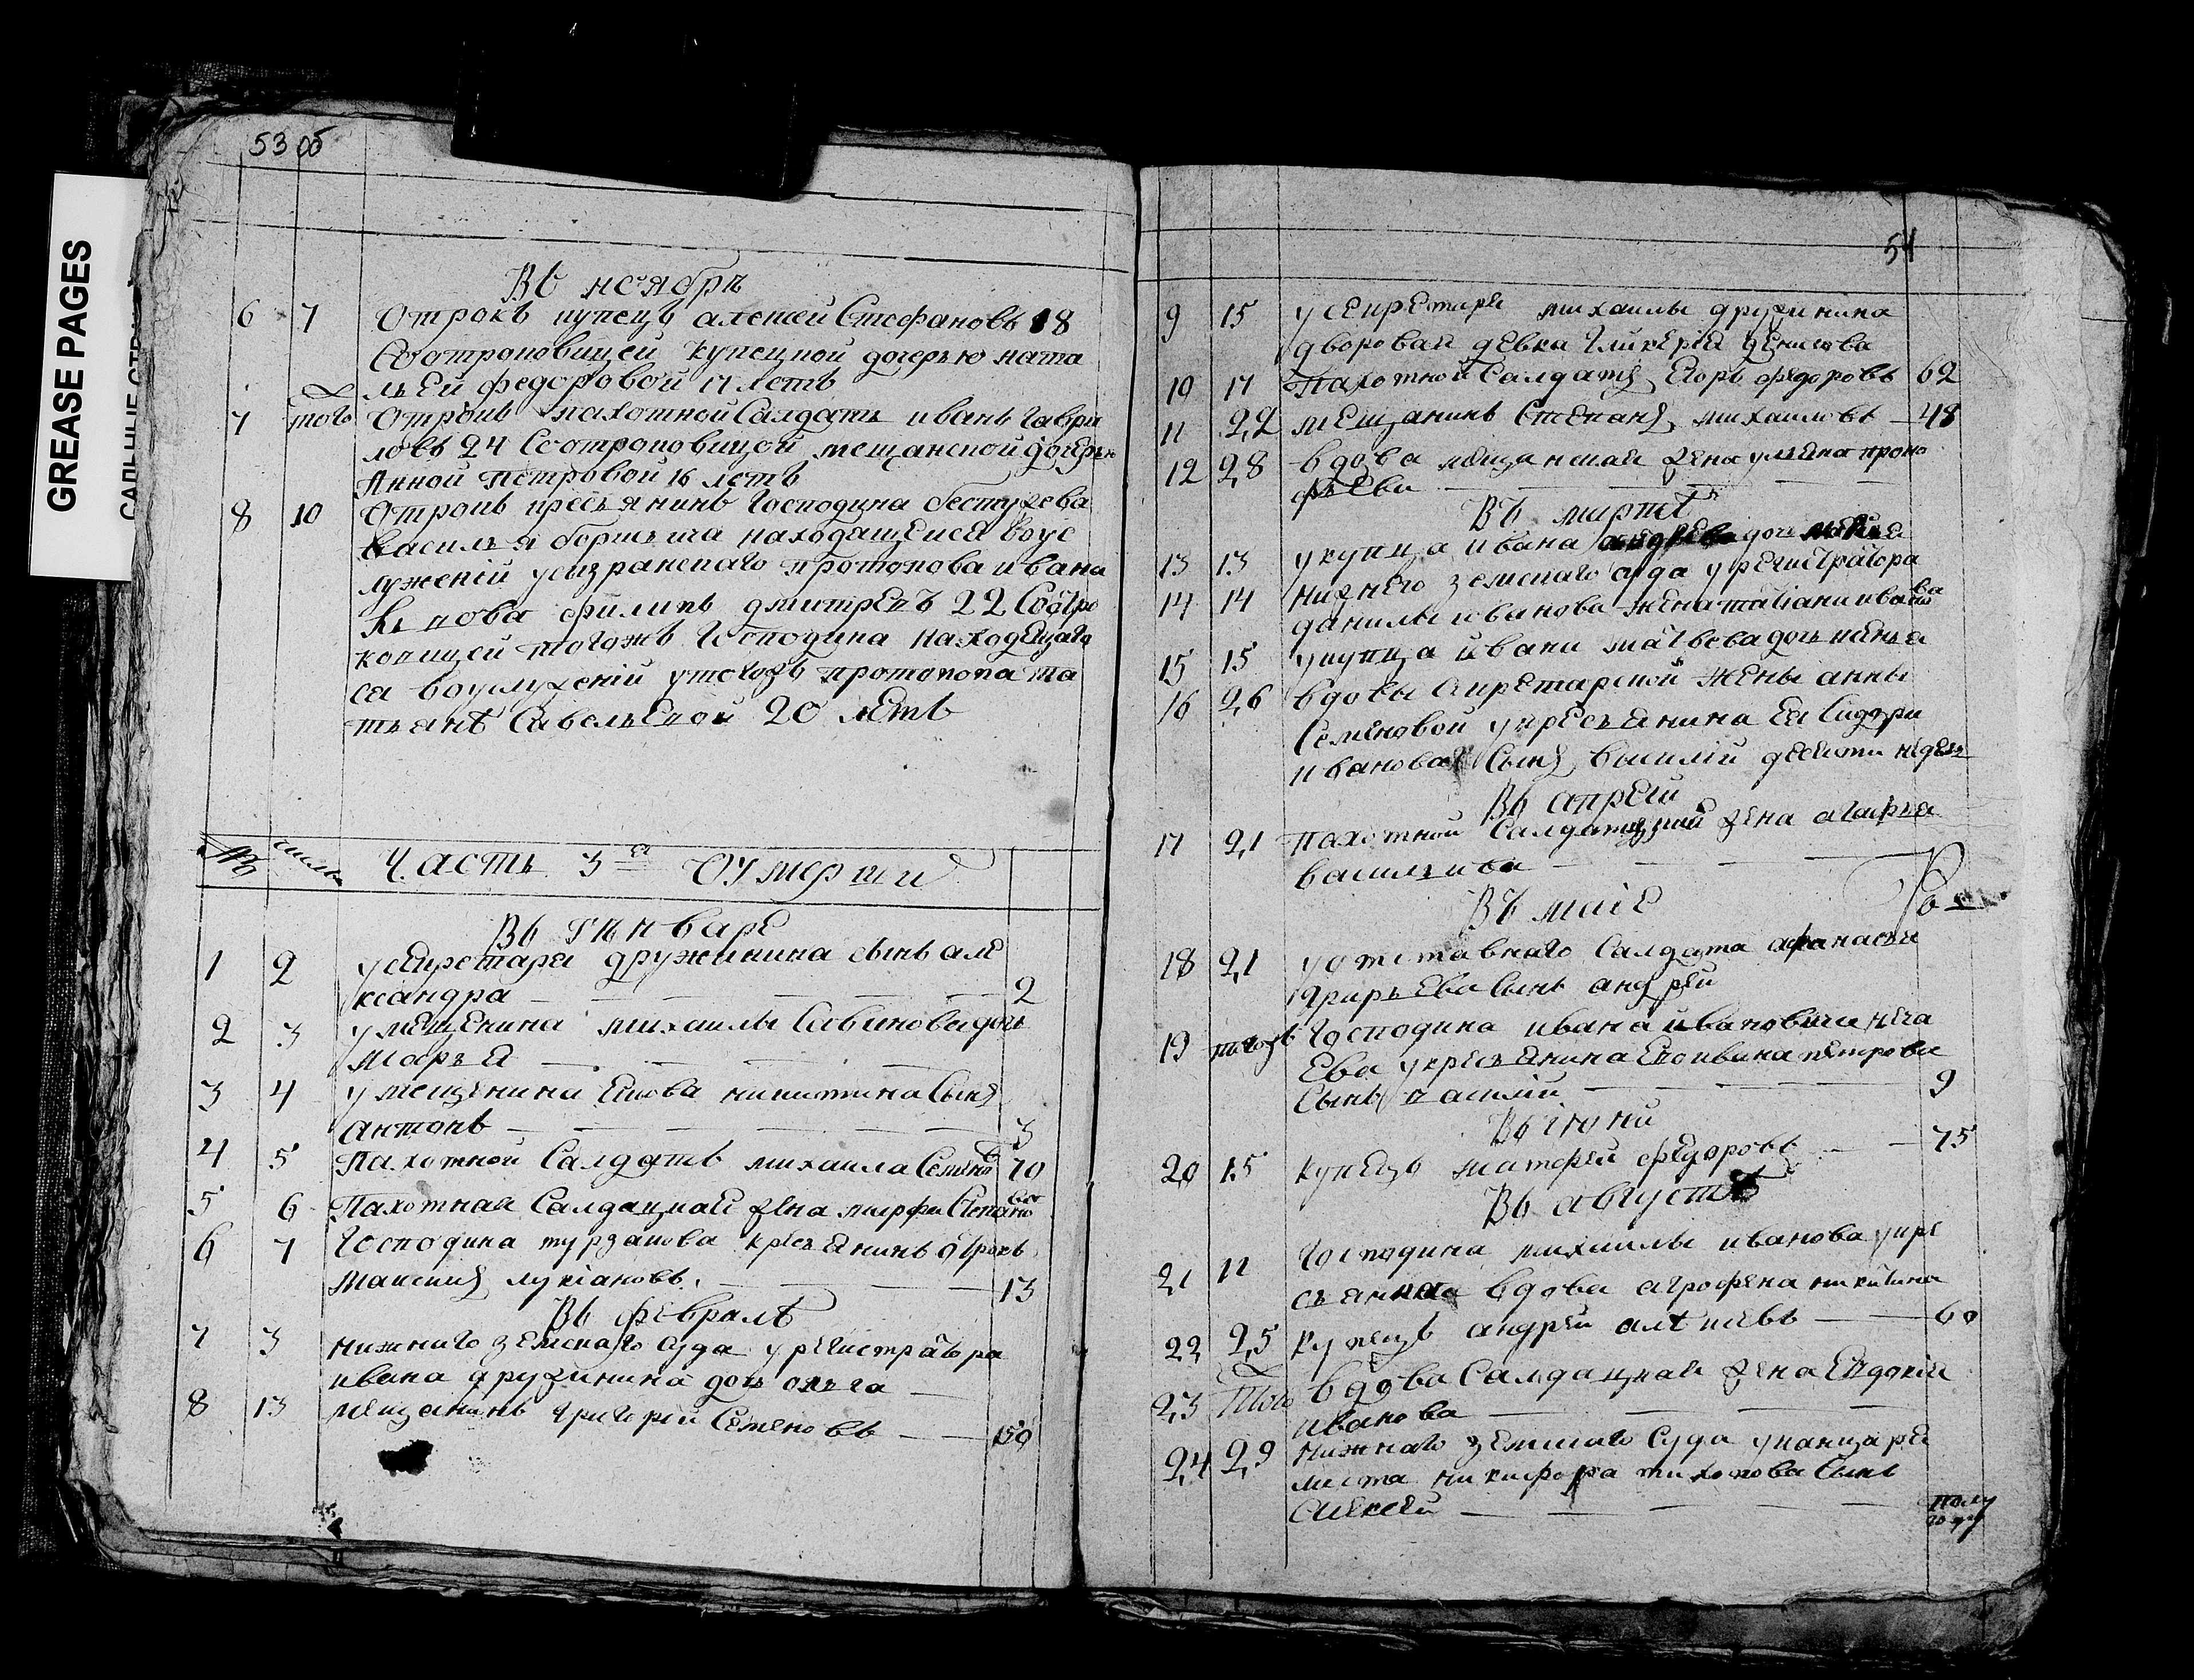 GREASE PAGES
53 об
Въ ноябрѣ
6 7 Отрокъ купецъ алексей Стефановъ 18
Соотроковицей купецкой дочерью ната
льей федоровой 17 летъ
7 того Отрокъ пахотной Салдатъ иванъ Гаври
ловъ 24 Соотроковицой мещанской дочерью
Анной петровой 16 летъ
8 10 Отрокъ кресьянинъ Господина бестужева
василья борисыча находящейся воус
лужении усызранскаго протопопа ивана
филипъ дмитревъ 22 Соотро
ковицей тогожъ Господина находещаго
са воуслужений утогожъ протопопа та
тьянѣ Савельевой 20 летъ
№ числа Часть 3я Оумерши
Въ Генваре
1 2 усекретаря дружинина сынъ але
ксандра 2
2 3 умещенина михаилы Савинова дочь
Марья
3 4 умещенина никитина Сынъ
антонъ 3
4 5 Пахотной Салдатъ михаила Семеновъ 70
5 6 Пахотная Салдацкая жена марфа Степанова
6 7 Господина турзакова кресьянинъ отрокъ
Максимъ лукіановъ. 13
Въ февралѣ
7 3 нижнаго земскаго суда урегистратора
ивана дружинина дочь олга
8 13 мещанинъ григорий Семеновъ 59
54
9 15 усекретаря михаилы дружинина
дворовая девка Гликерия денисова
10 17 Пахотной Салдатъ Егоръ федоровъ 62
11 22 мещанинъ Степанъ михаиловъ 48
12 28 вдова мещанская жена улиана проко
фьева
Въ мартѣ
13 13 укупца ивана дочь
14 14 нижнего земскаго суда урегистратора
данилы иванова жена татіана иванова
15 15 укупца ивана матвева дочь
16 26 вдовы секретарской жены анны
Семеновой укресьянина Ея Сидора
иванова Сынъ василий десяти недель
Въ апрели
17 21 пахотной Салдатцкой жена агафья
васильева
Въ маіе
18 21 уотставнаго Салдата афанасья
Сынъ андрей
19 тогожъ Господина ивана ивановича
Ева укресьянина Ево ивана петрова
Сынъ василий 9
Въ июни
20 15 купецъ матфей федоровъ 75
Въ августѣ
21 11 Господина михаилы иванова укре
сьянина вдова агрофена никитина
22 25 купецъ андрей алѣ 60
23 того вдова Салдацкая жена Евдокия
иванова
24 29 нижнаго земскаго Суда уканцеля
листа никифора тихонова Сынъ
алексей полу
году